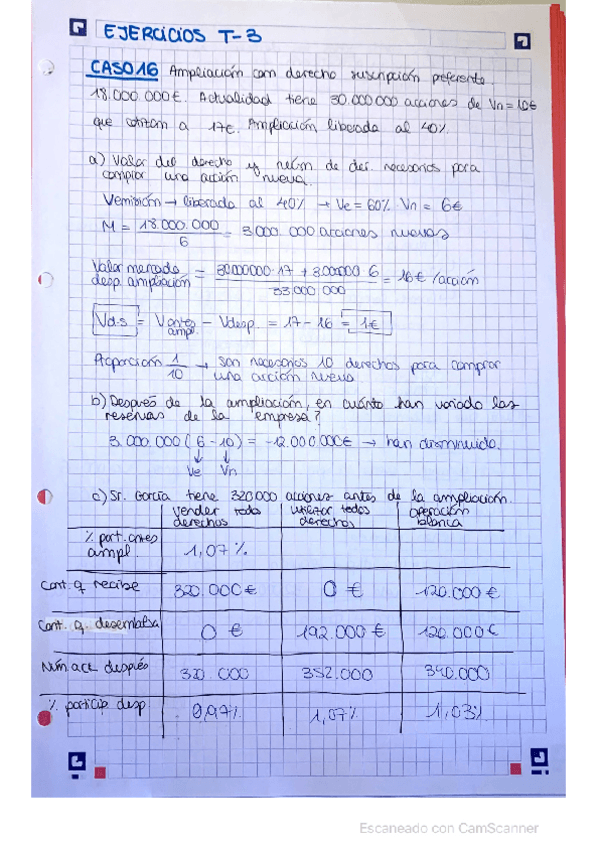 EJERCICIOS T-3
CASO 16 Ampliación con derecho suscripción preferente.
18.000.000€. Actualidad tiene 30.000.000 acciones de Vn=10€
que cotizan a 17€. Ampliación liberada al 40%.
a) Valor del derecho y núm de der. necesarios para
comprar una acción nueva.
Vemisión → liberada al 40% → Ve = 60% Vn = 6€
M = 18.000.000 / 6 = 3.000.000 acciones nuevas
Valor mercado desp. ampliación = 30000000·17 + 3000000·6 / 33.000.000 = 16€/acción
Vd.s = Vantes ampl. - Vdesp. = 17 - 16 = 1€
Proporción 1/10 → son necesarios 10 derechos para comprar
una acción nueva
b) Después de la ampliación, en cuánto han variado las
reservas de la empresa?
3.000.000 (6 - 10) = -12.000.000€ → han disminuido.
↓ ↓
Ve Vn
c) Sr. García tiene 320.000 acciones antes de la ampliación.
vender todos derechos | utilizar todos derechos | operación blanca
% part. antes ampl | 1,07%
Cant. q recibe | 320.000€ | 0€ | 120.000€
Cant. q. desembolsa | 0€ | 192.000€ | 120.000€
Núm act. después | 320 000 | 352.000 | 340.000
% particip desp | 0,97% | 1,07% | 1,03%
Escaneado con CamScanner